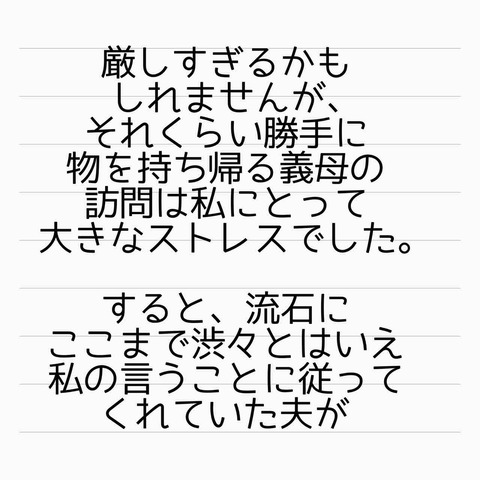 厳しすぎるかも
しれませんが、
それくらい勝手に
物を持ち帰る義母の
訪問は私にとって
大きなストレスでした。
すると、流石に
ここまで渋々とはいえ
私の言うことに従って
くれていた夫が